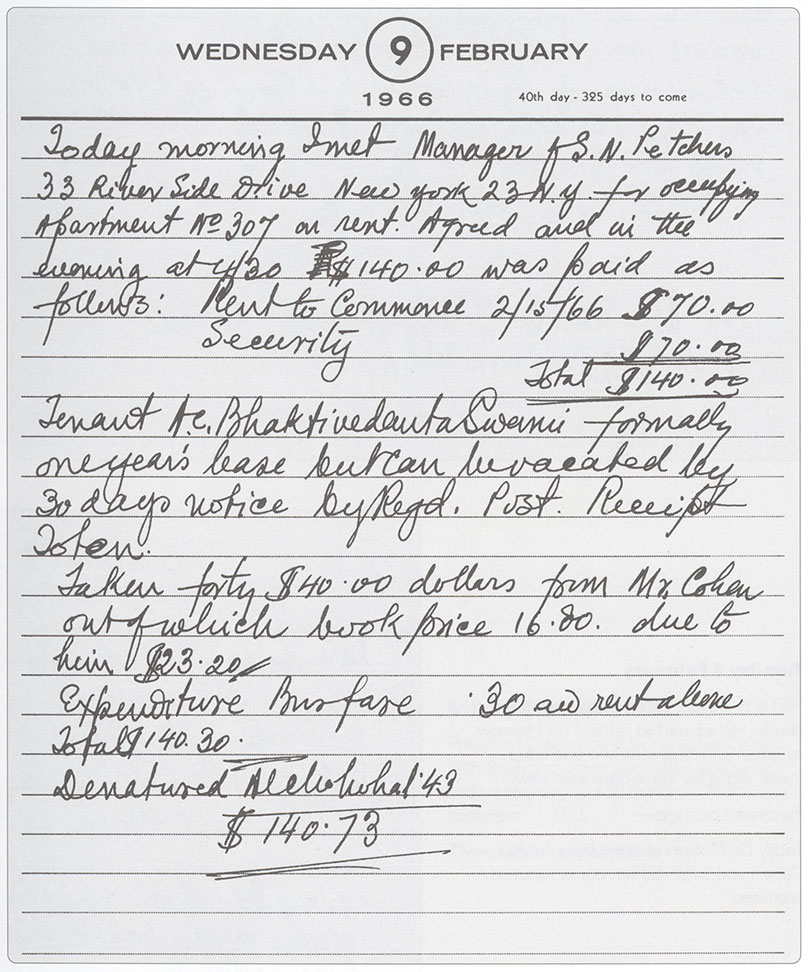 WEDNESDAY 9 FEBRUARY
1966 40th day - 325 days to come
Today morning I met Manager of S.N. Petchers
33 River Side Drive New york 23 N.y. for occupying
Apartment No 307 on rent. Agreed and in the
evening at 4/30 $140.00 was paid as
follows: Rent to Commence 2/15/66 $70.00
Security $70.00
Total $140.00
Tenant A.C. Bhaktivedanta Swami formally
one year's lease but can be vacated by
30 days notice by Regd. Post. Receipt
Token.
Taken forty $40.00 dollars from Mr. Cohen
out of which book price 16.80. due to
him $23.20/
Expenditure Bus fare .30 and rent above
Total $140.30.
Denatured Alchohal .43
$140.73